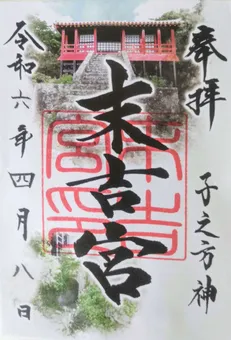 奉拝
子之方神
末吉宮
末吉宮印
令和六年四月八日